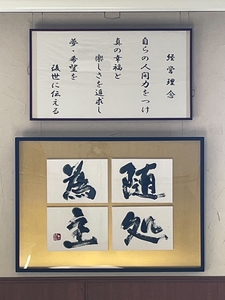 経営理念
自らの人間力をつけ
真の幸福と
楽しさを追求し
夢・希望を
後世に伝える
随処
為主